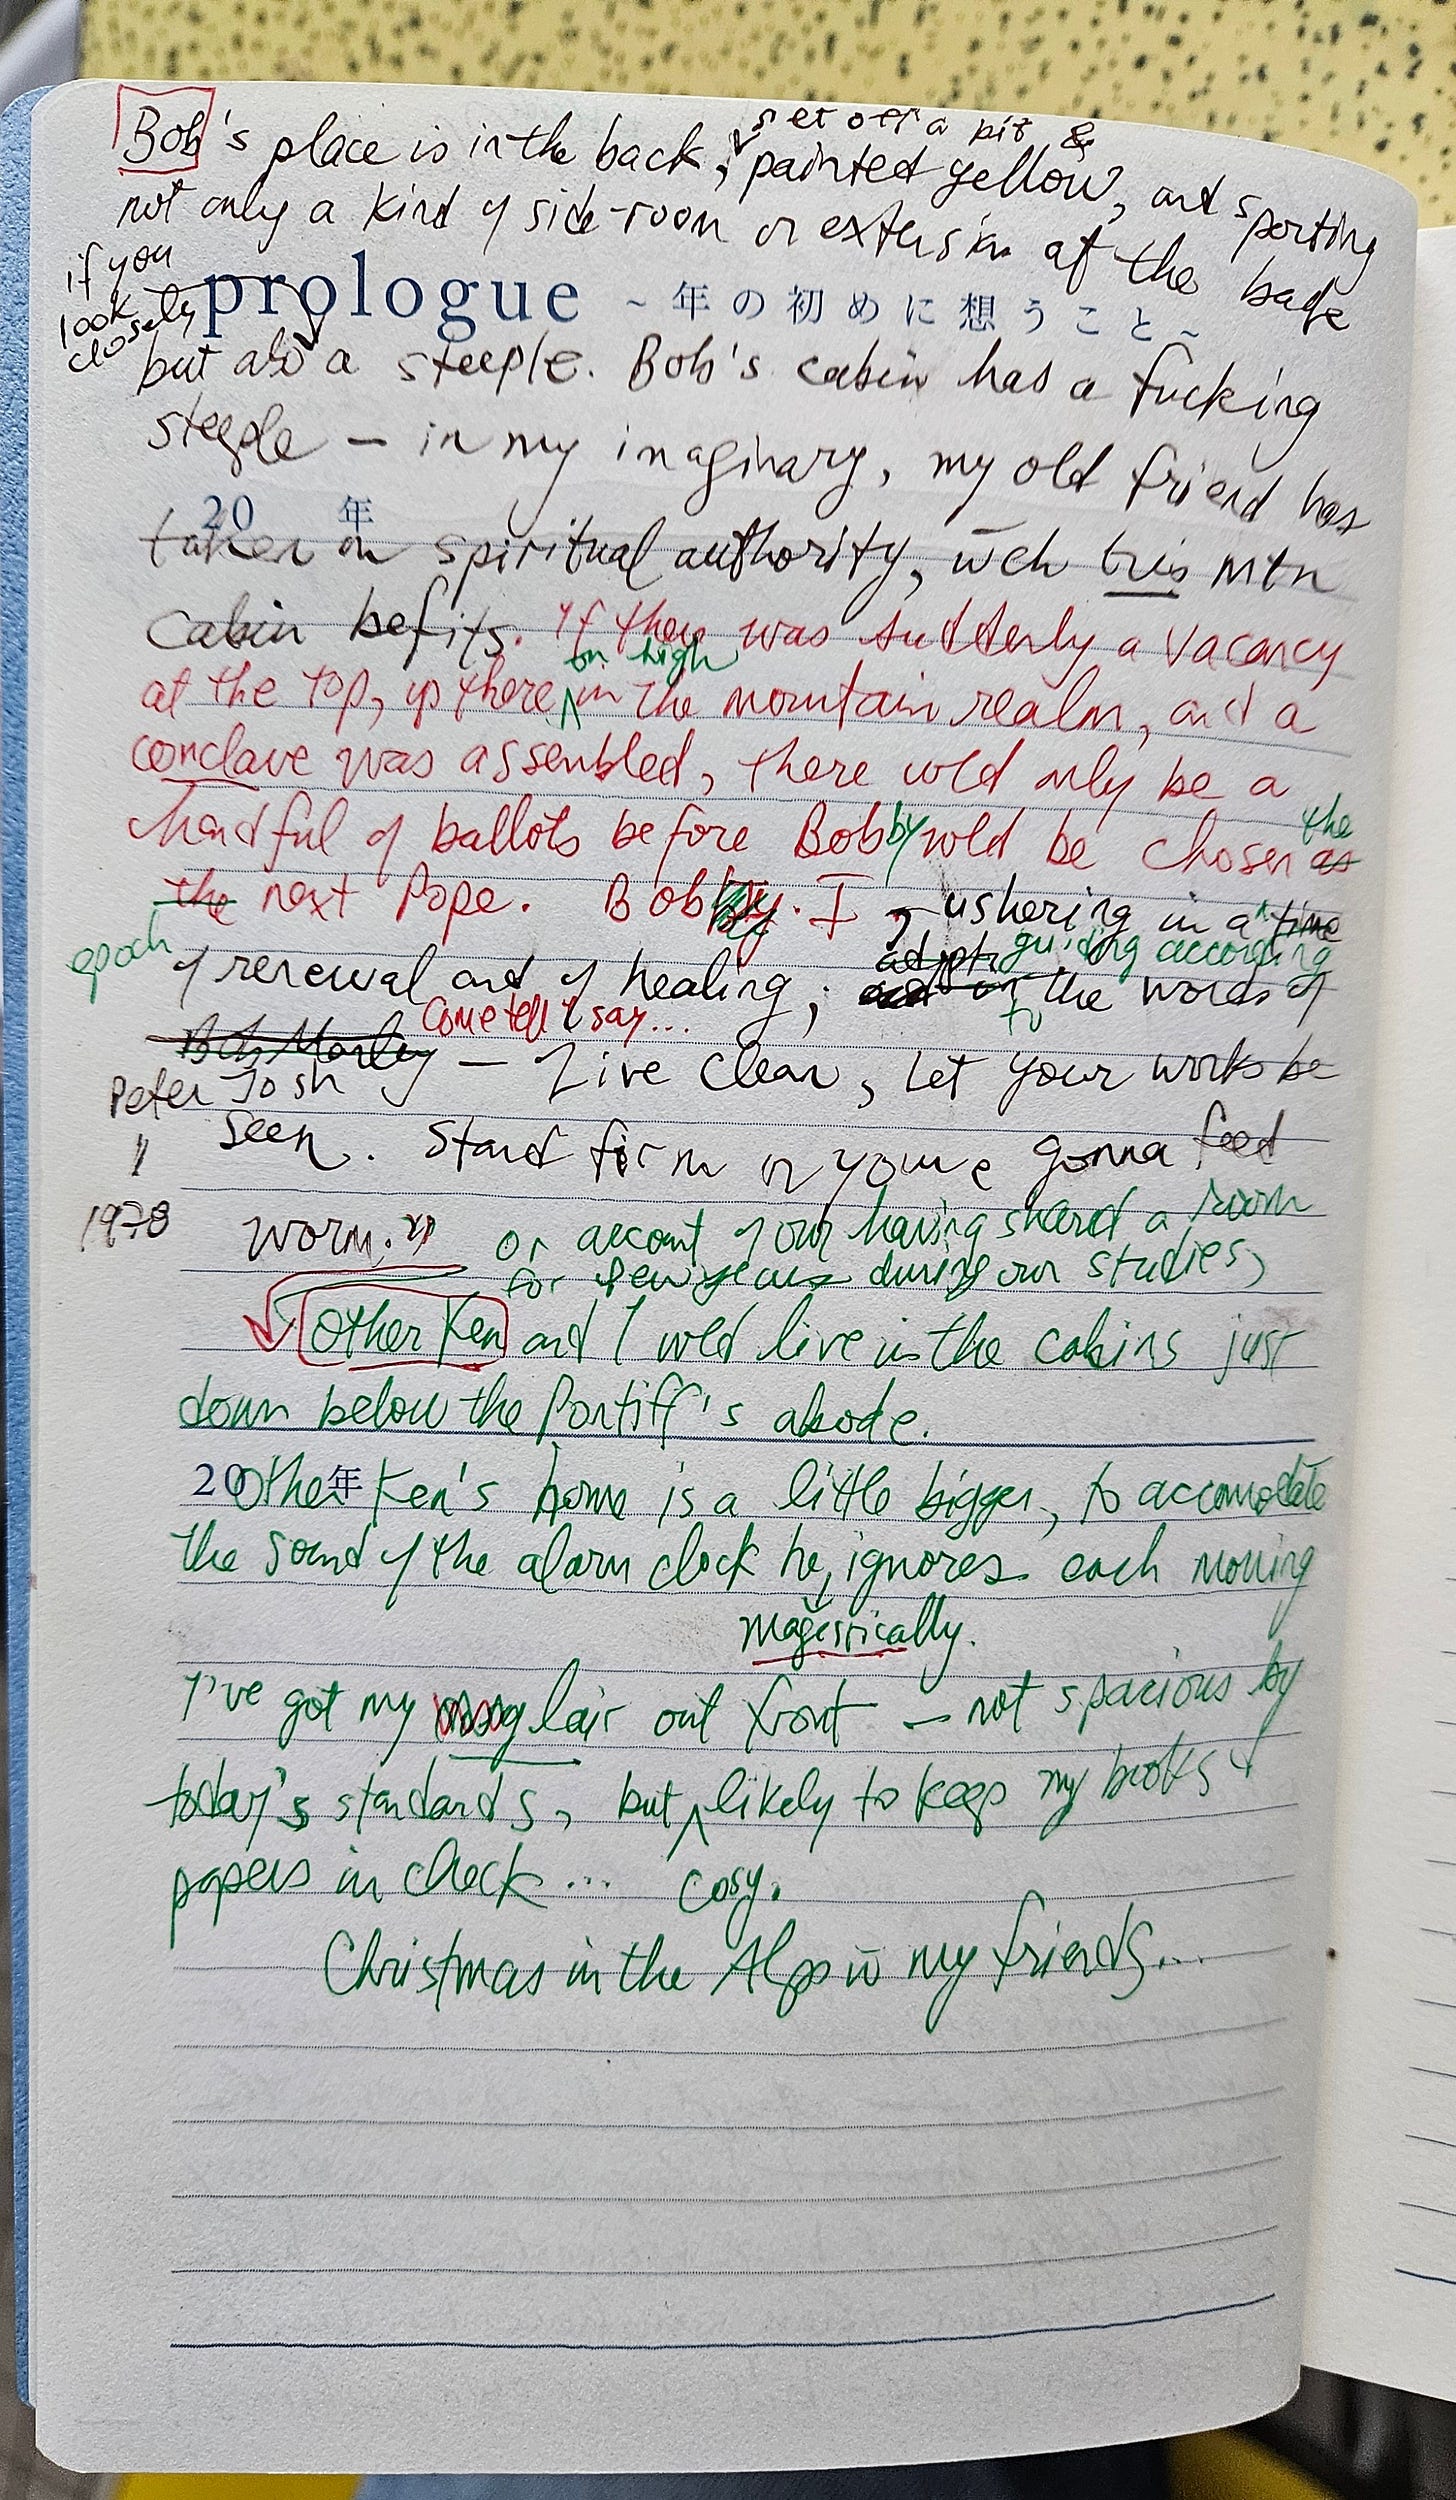 set off a bit &
Bob's place is in the back, painted yellow, and sporting
not only a kind of side-room or extension at the back
if you
look
closely
prologue ~年の初めに想うこと~
but also a steeple. Bob's cabin has a fucking
steeple — in my imaginary, my old friend has
20 年
taken on spiritual authority, wch this mtn
cabin befits. If there was suddenly a vacancy
on high
at the top, up there in the mountain realm, and a
conclave was assembled, there wld only be a
handful of ballots before Bobby wld be chosen as
the
the next Pope. Bobby I, ushering in a time
epoch
guiding according
of renewal and of healing; to the words of
Come tell I say...
Bob Marley — Live clean, let your works be
Peter Tosh
seen. Stand firm or youre gonna feed
"
1978
worm."
on account of our having shared a room
for few years during our studies,
Other Ken and I wld live in the cabins just
down below the Pontiff's abode.
20 年
Other Ken's home is a little bigger, to accomodate
the sound of the alarm clock he ignores each morning
magestically.
I've got my lair out front — not spacious by
today's standards, but likely to keep my books &
papers in check... cosy.
Christmas in the Alps w my friends...